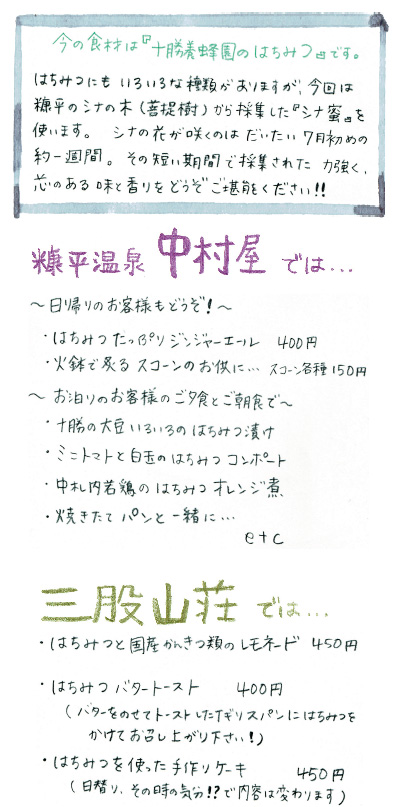 今の食材は『十勝養蜂園のはちみつ』です。
はちみつにも いろいろな種類がありますが、今回は
糠平のシナの木（菩提樹）から採集した『シナ蜜』を
使います。 シナの花が咲くのは だいたい 7月初めの
約一週間。 その短い期間で採集された 力強く、
芯のある 味と香りを どうぞ ご堪能ください!!
糠平温泉 中村屋 では…
～日帰りのお客様もどうぞ！～
・はちみつたっぷりジンジャーエール 400円
・火鉢で炙る スコーンのお供に… スコーン各種150円
～ お泊りのお客様のご夕食とご朝食で～
・十勝の大豆いろいろの はちみつ漬け
・ミニトマトと白玉の はちみつ コンポート
・中札内若鶏の はちみつ オレンジ煮
・焼きたて パンと一緒に…
etc
三股山荘 では…
・はちみつと国産かんきつ類の レモネード 450円
・はちみつ バタートースト 400円
（バターをのせてトーストしたイギリスパンにはちみつを
かけてお召し上がり下さい！）
・はちみつを使った手作りケーキ 450円
（日替り、その時の気分!?で内容は変わります）